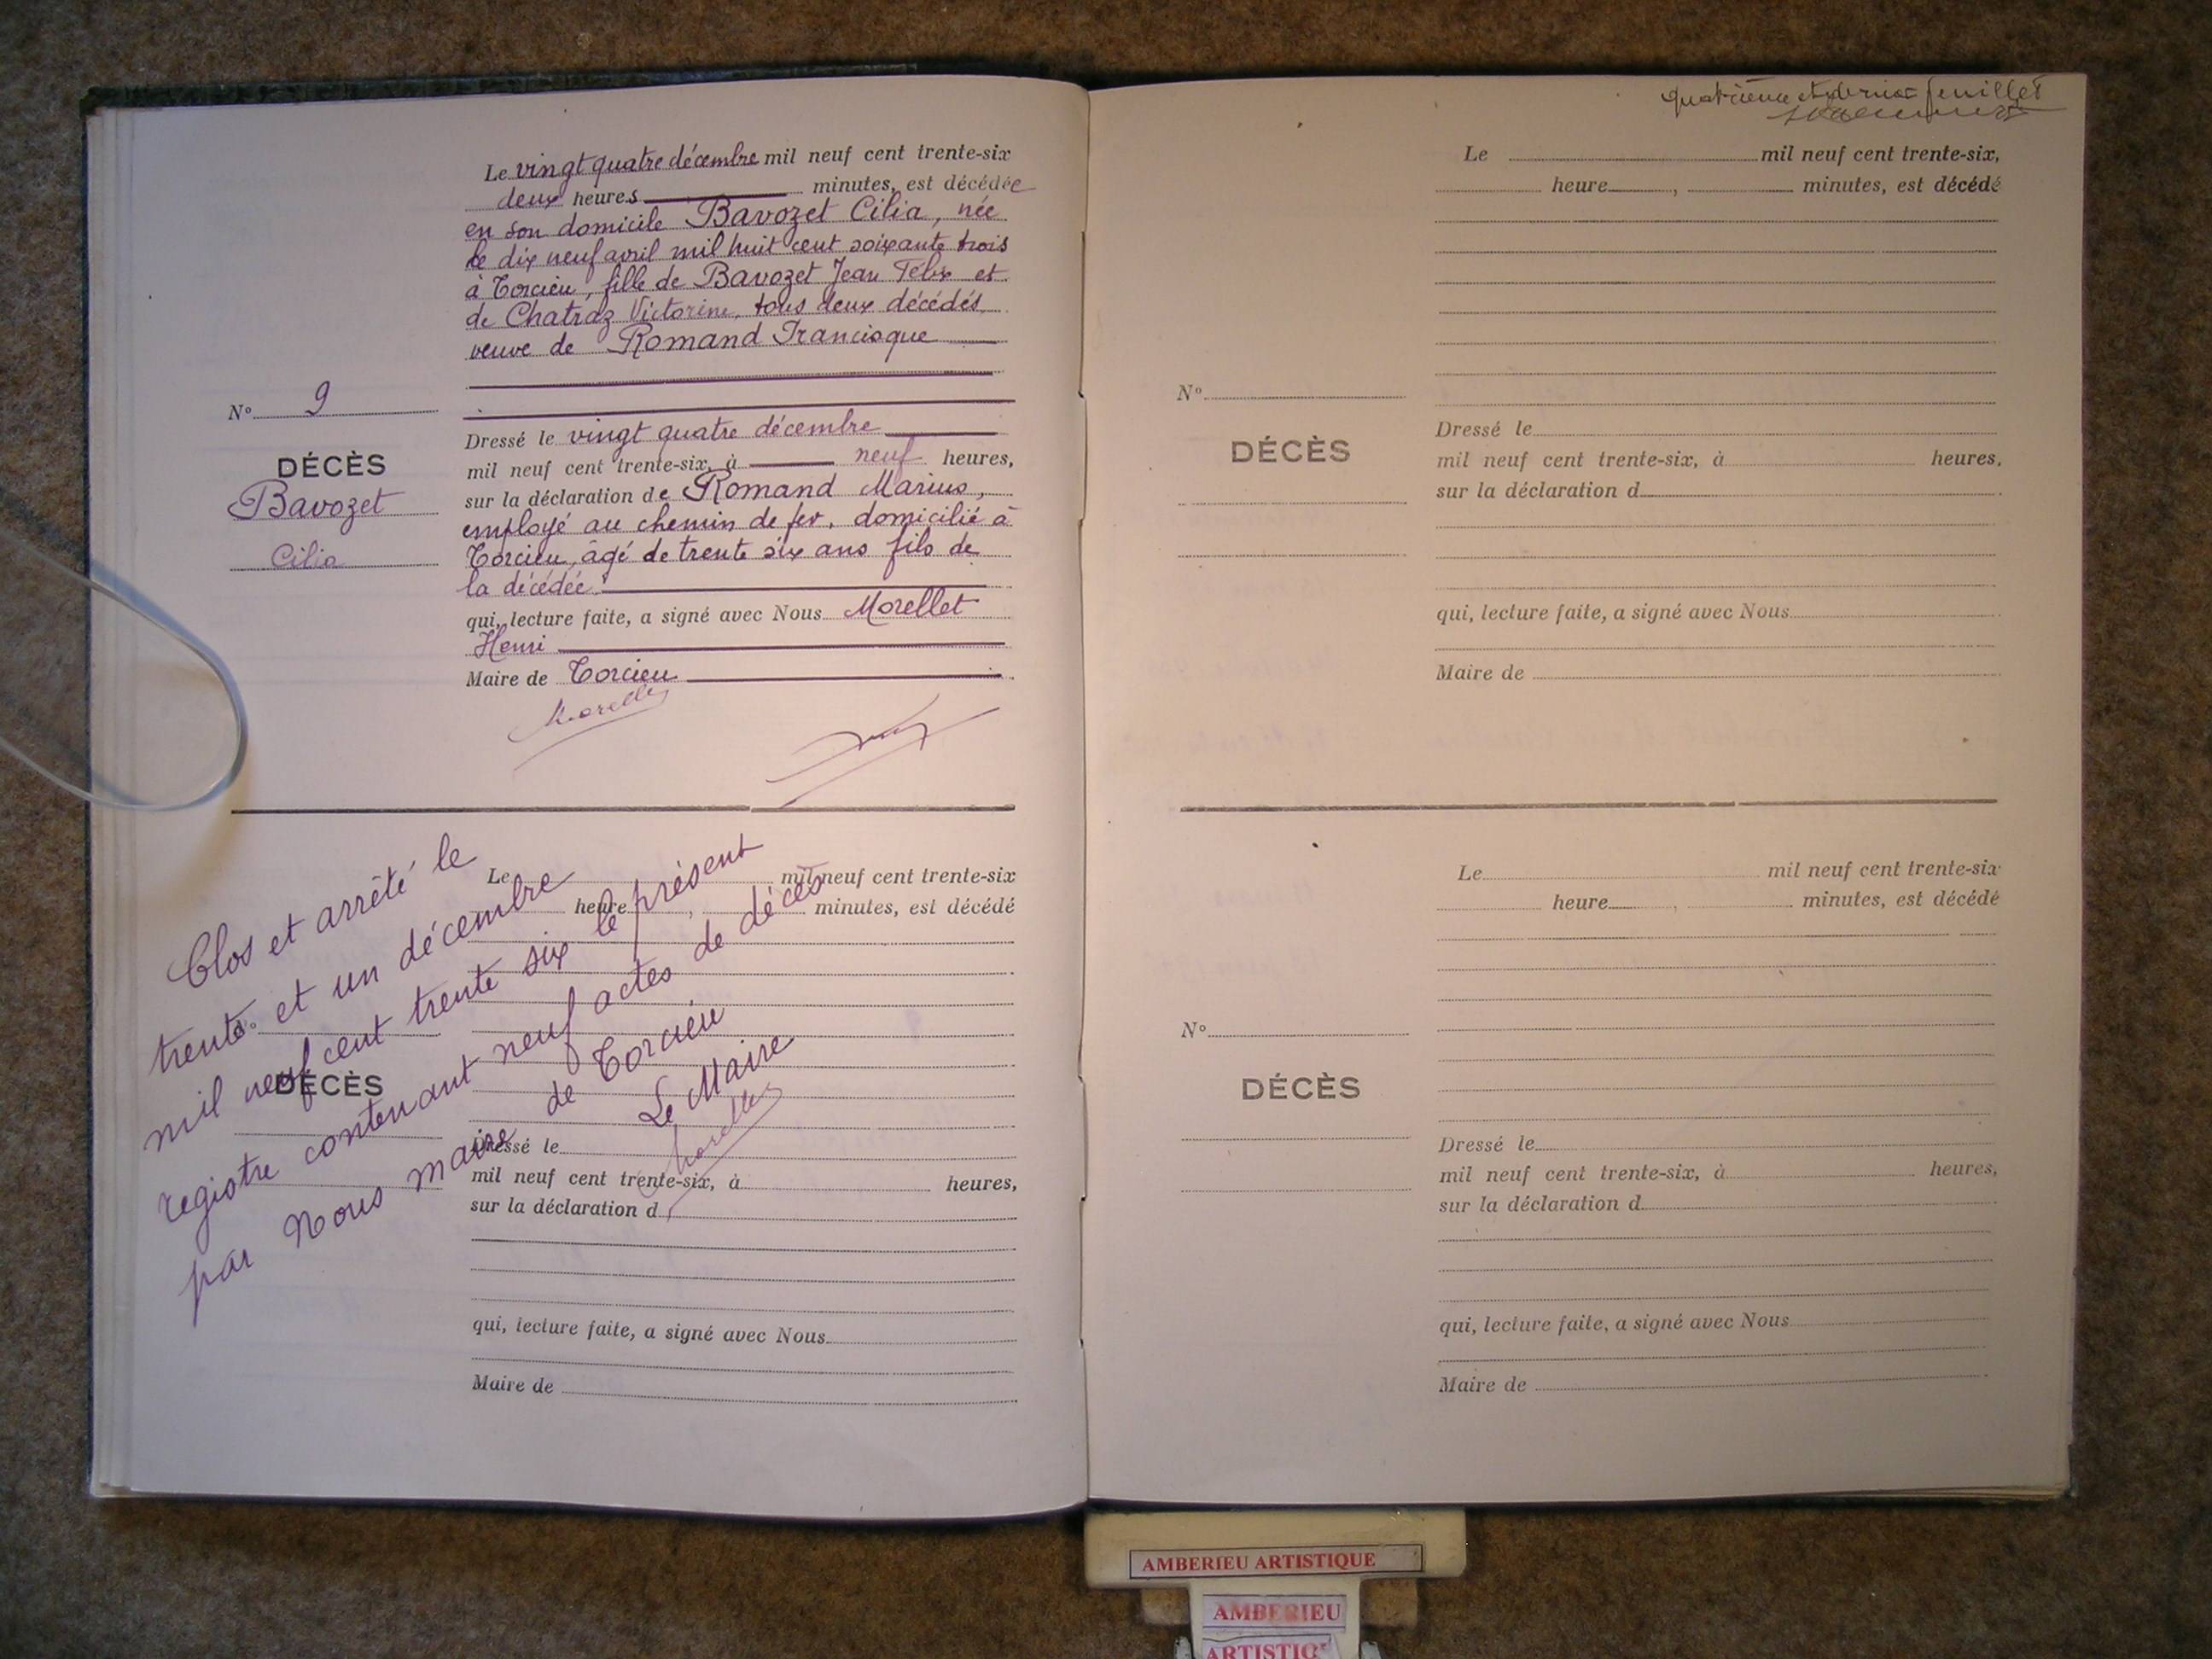 Le vingt quatre décembre mil neuf cent trente-six
deux heures minutes, est décédée
en son domicile Bavozet Cilia, née
le dix neuf avril mil huit cent soixante trois
à Torcieu, fille de Bavozet Jean Félix et
de Chatraz Victorine, tous deux décédés
veuve de Romand Francisque
N° 9
DÉCÈS
Bavozet
Cilia
Dressé le vingt quatre décembre
mil neuf cent trente-six, à neuf heures,
sur la déclaration de Romand Marius,
employé au chemin de fer, domicilié à
Torcieu, âgé de trente six ans fils de
la décédée.
qui, lecture faite, a signé avec Nous Morellet
Henri
Maire de Torcieu
Morellet
Clos et arrêté le
trente et un décembre
mil neuf cent trente six le présent
registre contenant neuf actes de décès
par Nous maire de Torcieu
Le Maire
Morellet
Le mil neuf cent trente-six
heure , minutes, est décédé
N°
DÉCÈS
Dressé le
mil neuf cent trente-six, à heures,
sur la déclaration d
qui, lecture faite, a signé avec Nous
Maire de
quatrième et dernier feuillet
Le mil neuf cent trente-six,
heure , minutes, est décédé
N°
DÉCÈS
Dressé le
mil neuf cent trente-six, à heures,
sur la déclaration d
qui, lecture faite, a signé avec Nous
Maire de
Le mil neuf cent trente-six
heure , minutes, est décédé
N°
DÉCÈS
Dressé le
mil neuf cent trente-six, à heures,
sur la déclaration d
qui, lecture faite, a signé avec Nous
Maire de
AMBERIEU ARTISTIQUE
AMBERIEU
ARTISTIQ